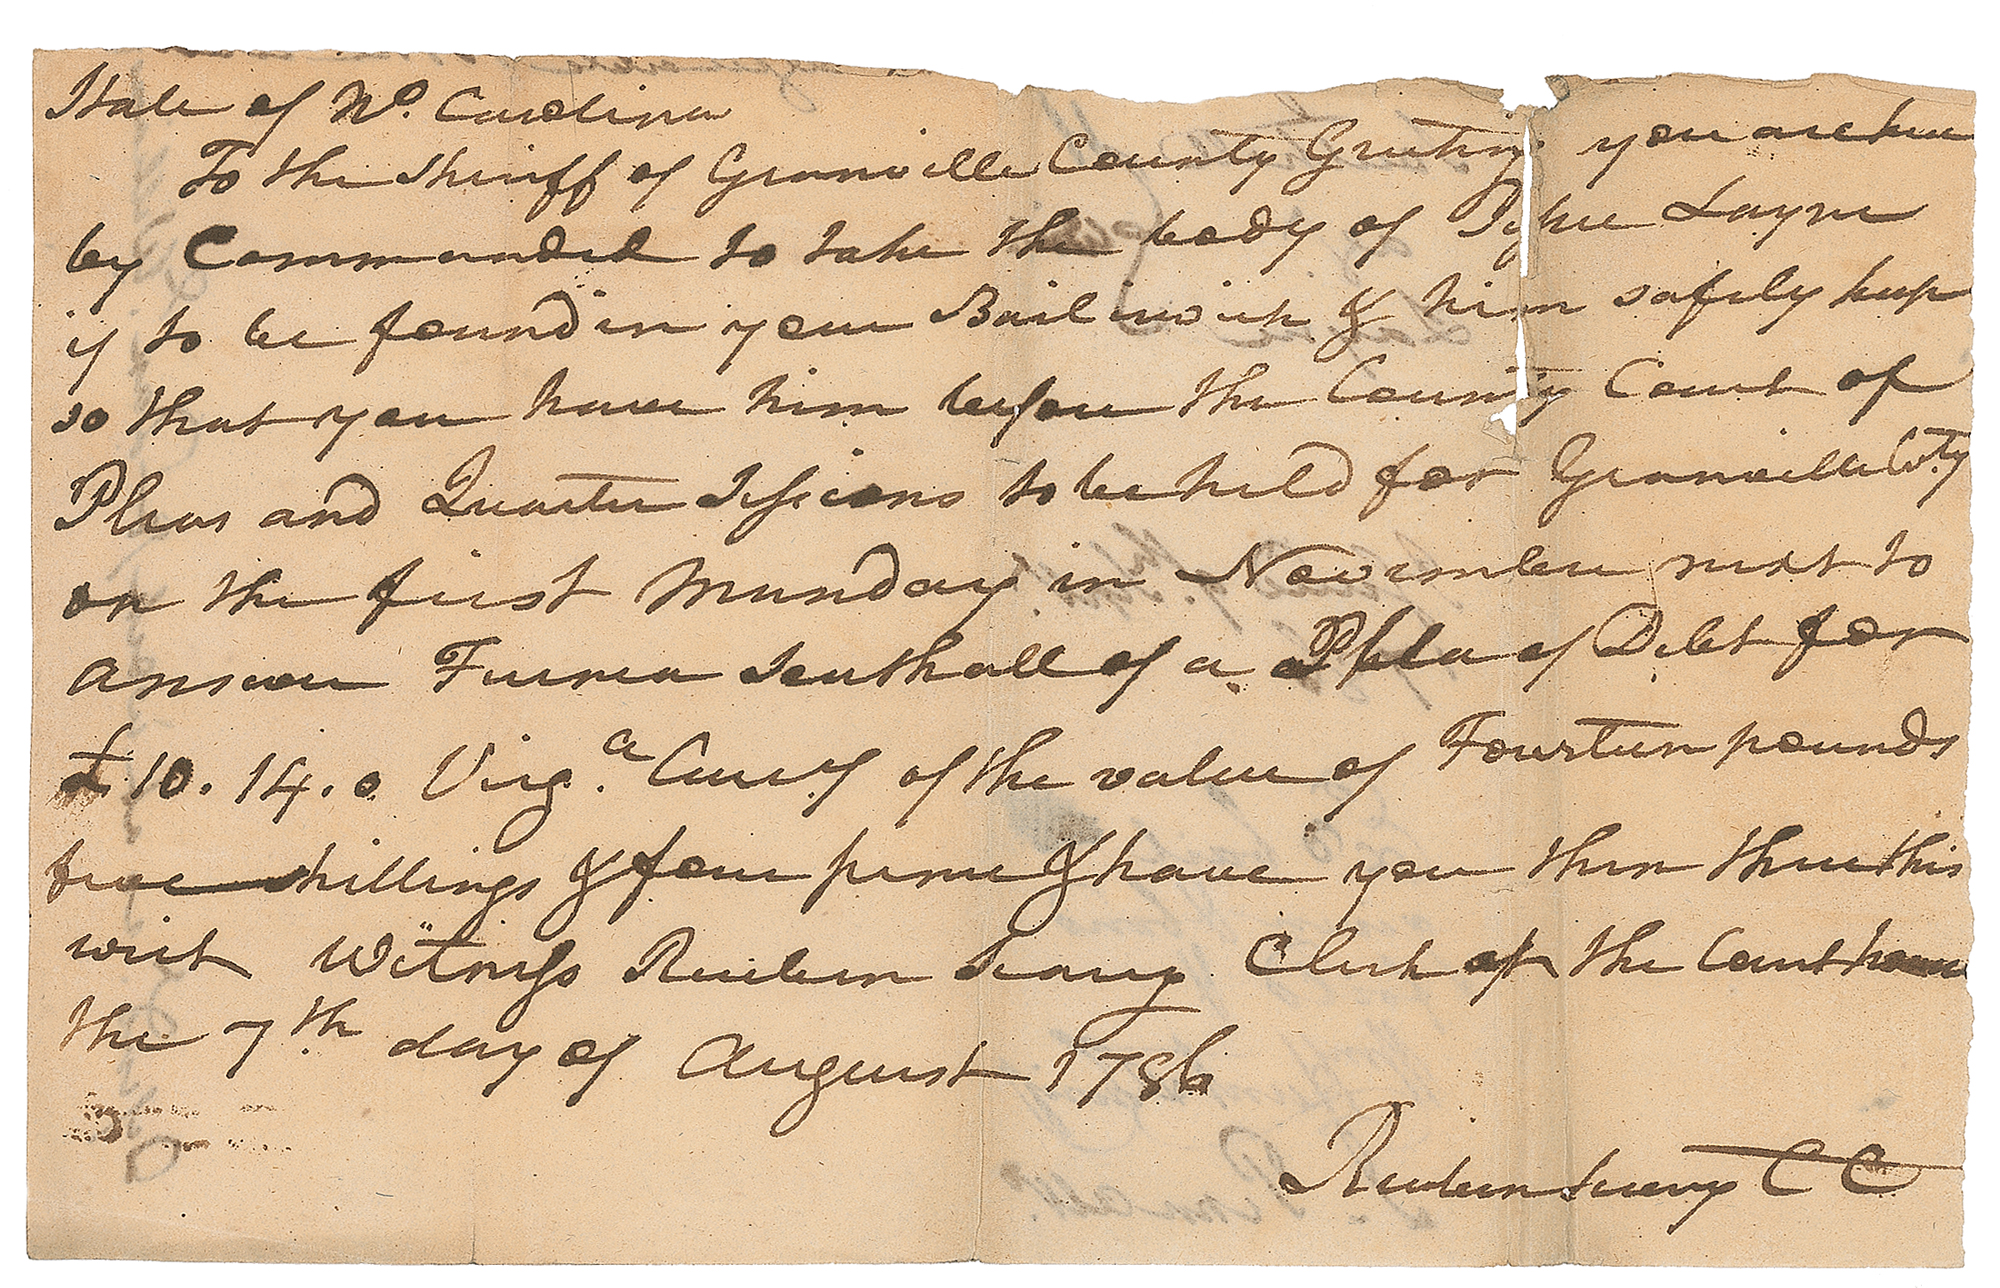 State of No. Carolina
To the Sheriff of Granville County Greeting you are here
by Commanded to take the body of Layne
if to be found in your Bailiwick & him safely keep
so that you have him before the County Court of
Pleas and Quarter Sessions to be held for Granville Coty
on the first Munday in November next to
answer Furna Southall of a Plea of Debt for
£10.14.0 Virga. Curry of the value of Fourteen pounds
five shillings & four pence & have you then there this
writ Witness Reuben Searcy Clerk at the Courthouse
the 7th day of August 1786
Reuben Searcy CC